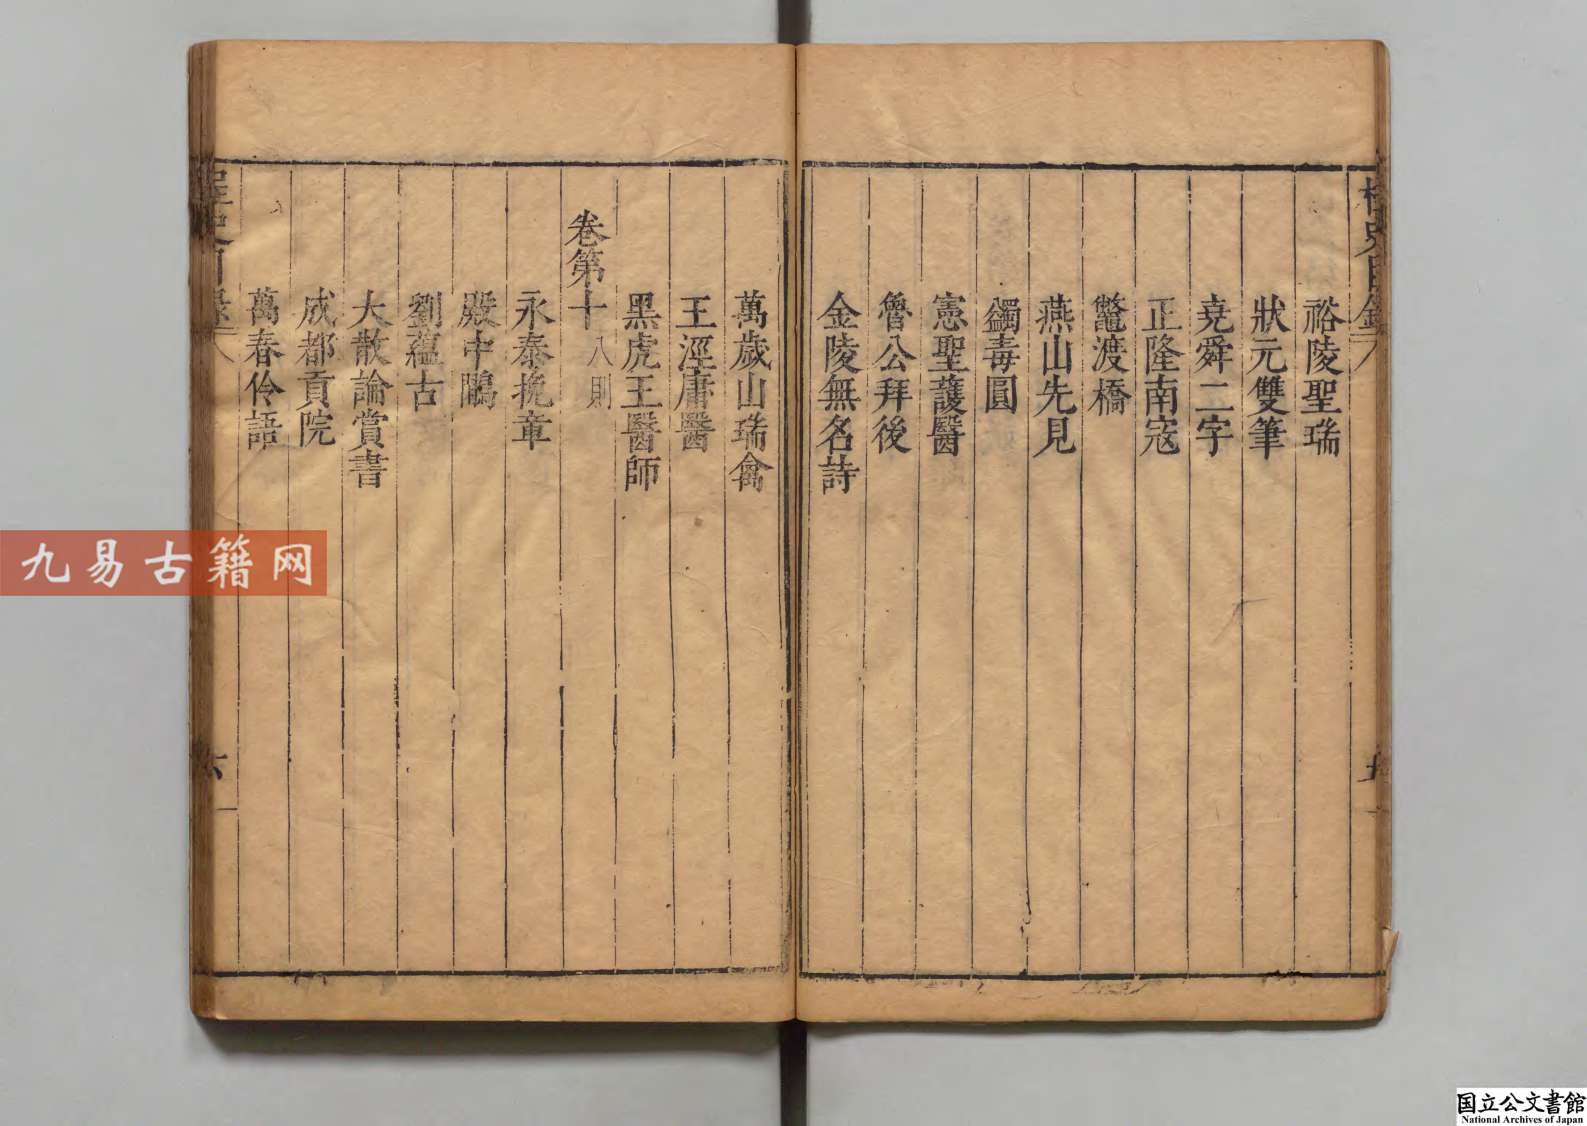 桯史目錄
裕陵聖瑞
狀元雙筆
堯舜二字
正隆南寇
鼈渡橋
燕山先見
蠲毒圓
憲聖護醫
魯公拜後
金陵無名詩
萬歲山瑞禽
王涇庸醫
黑虎王醫師
卷第十 八則
永泰挽章
殿中鵰
劉蘊古
大散論賞書
成都貢院
萬春伶語
桯史目錄
六
九易古籍网
国立公文書館
National Archives of Japan